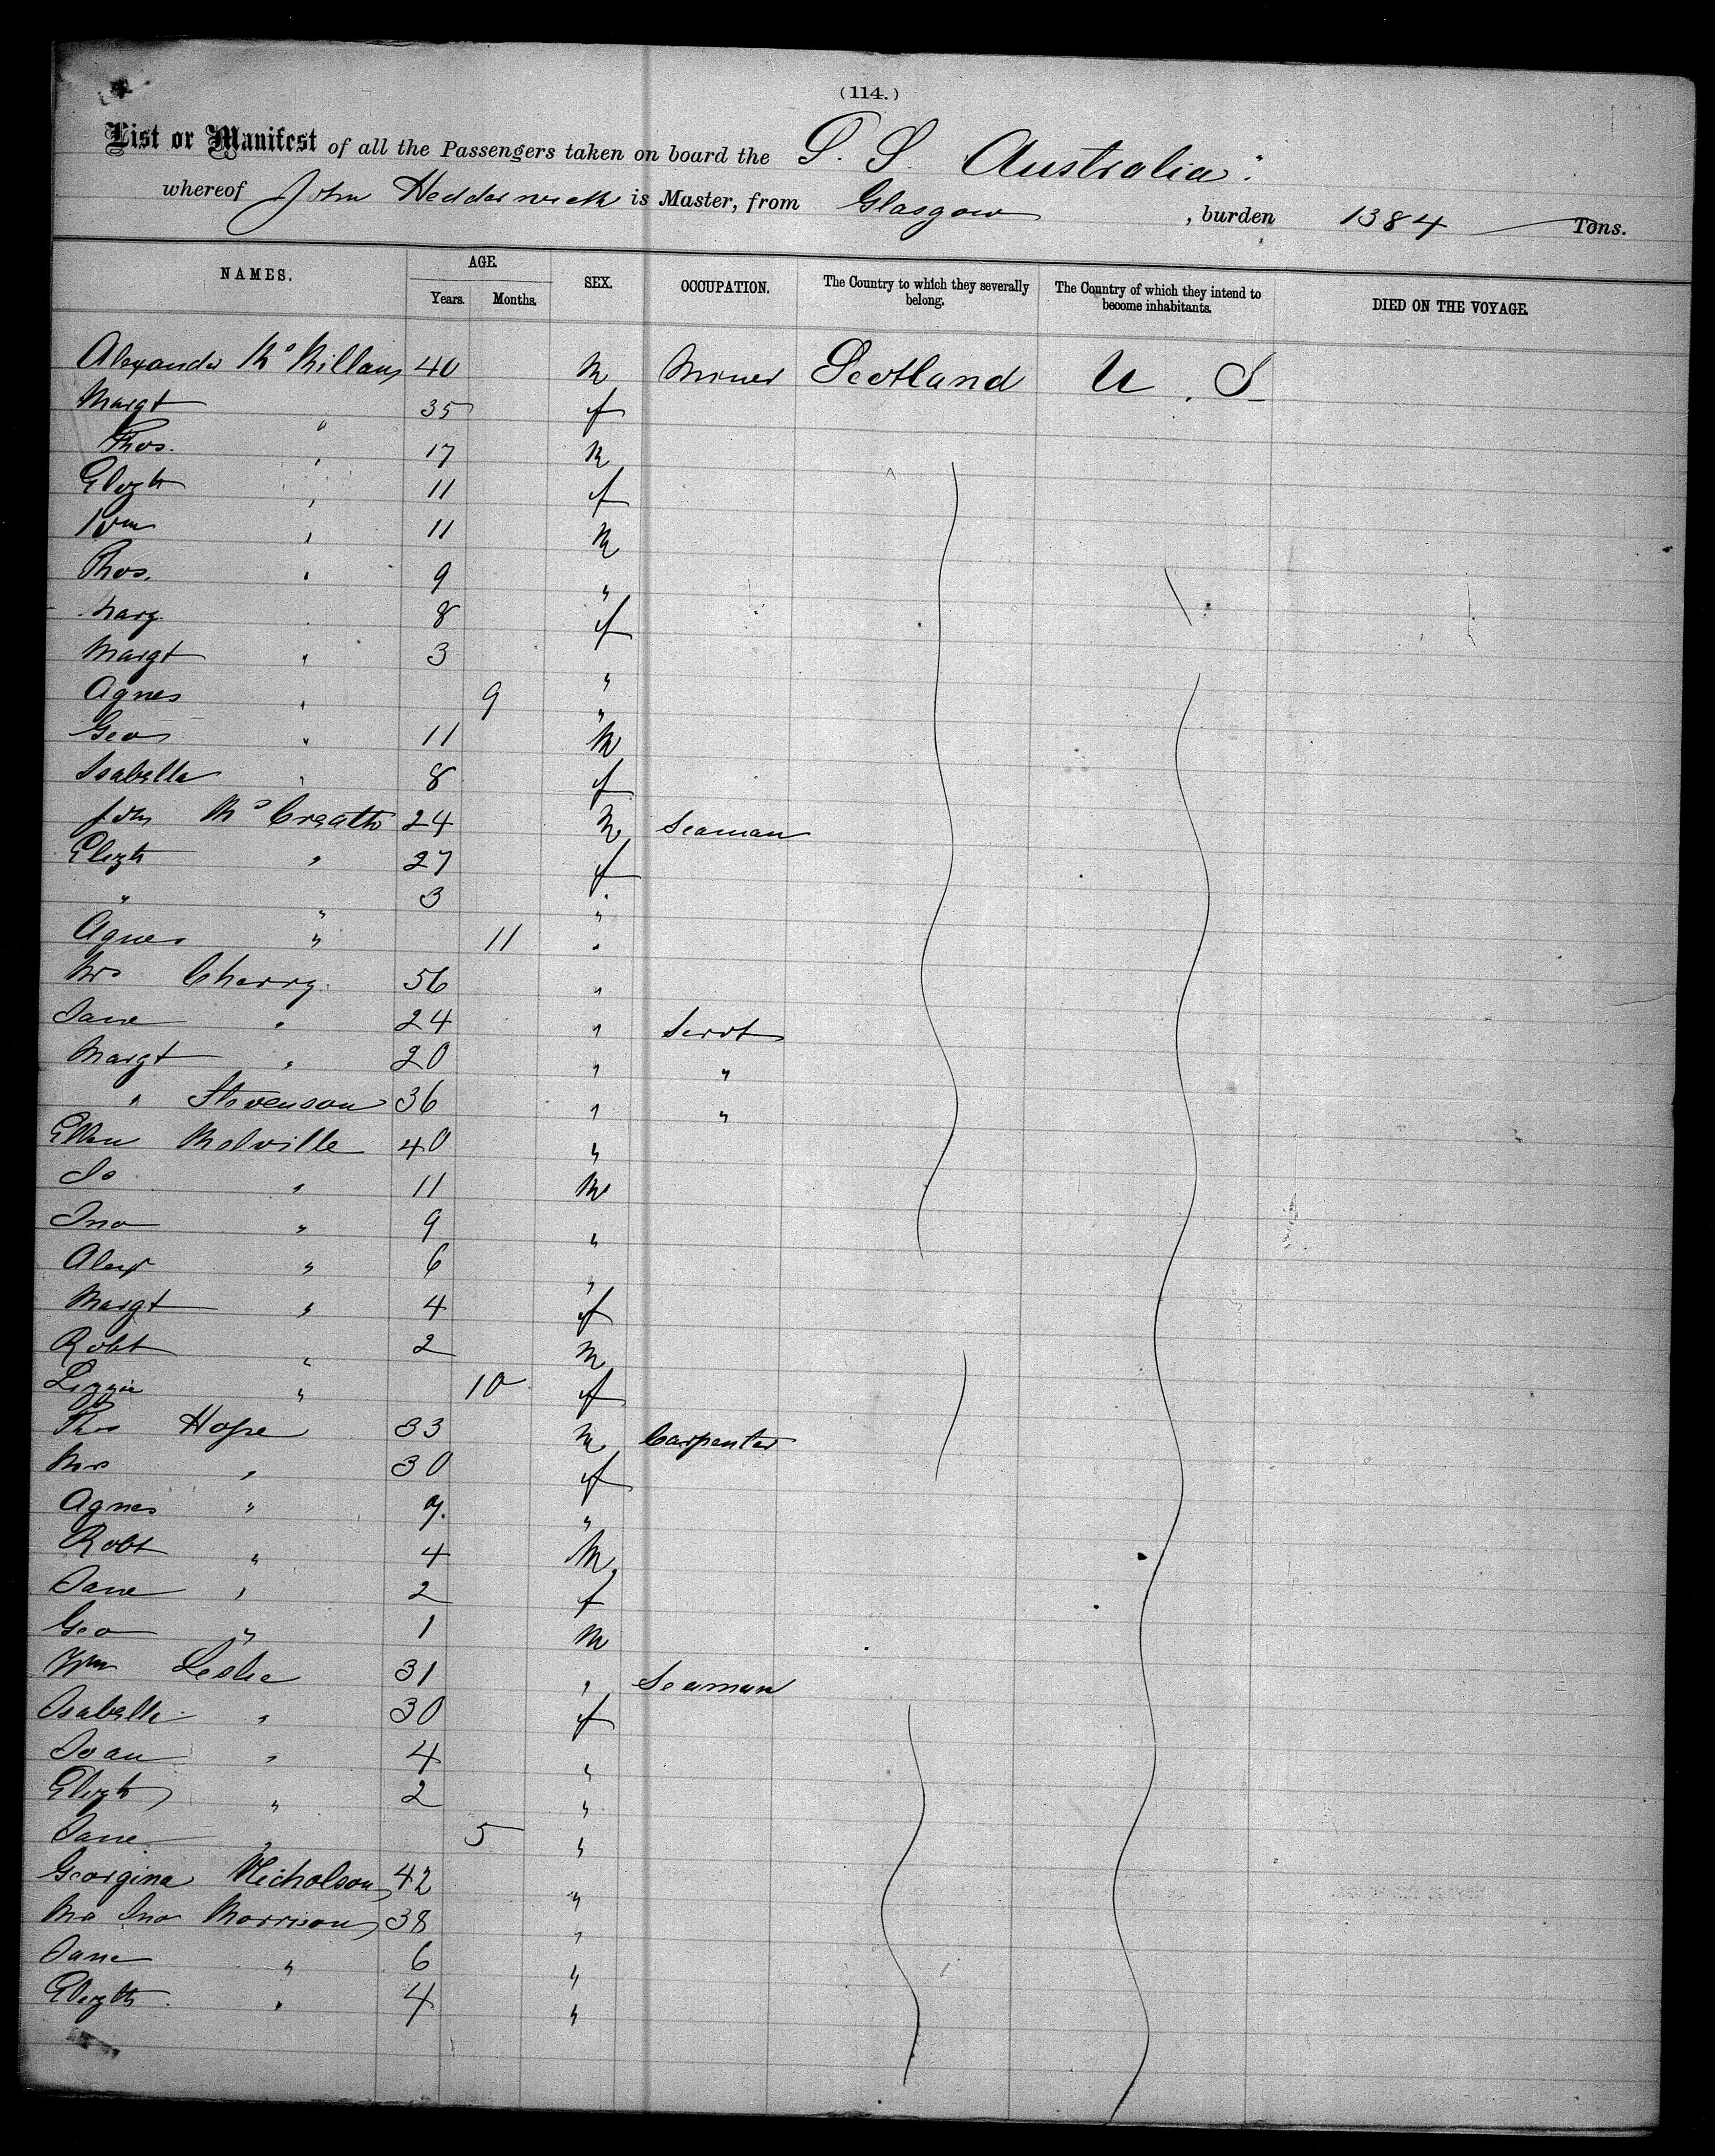 (114.)
List or Manifest of all the Passengers taken on board the S. S. Australia"
whereof John Hedderwick is Master, from Glasgow , burden 1384 Tons.
NAMES. AGE. SEX. OCCUPATION. The Country to which they severally belong. The Country of which they intend to become inhabitants. DIED ON THE VOYAGE.
Years. Months.
Alexander 40 M Miner Scotland U. S
Margt " 35 f
Thos. " 17 M
Elizth " 11 f
Wm " 11 M
Thos. " 9 "
Mary 8 f
Margt " 3 "
Agnes " 9 "
Geo " 11 M
Isabella " 8 f
Jon McCreath 24 M Seaman
Elizth " 27 f
" " 3 "
Agnes " 11 "
Mrs Cherry 56 "
Jane " 24 " Servt
Margt " 20 " "
" Stevenson 36 " "
Ellen Melville 40 "
Js " 11 M
Jno " 9 "
Alex " 6 "
Margt " 4 f
Robt " 2 M
Lizzie " 10 f
Thos Hope 33 M Carpenter
Mrs " 30 f
Agnes " 7. "
Robt " 4 M
Jane " 2 f
Geo " 1 M
Wm Leslie 31 " Seaman
Isabella " 30 f
Joan " 4 "
Elizth " 2 "
Jane " 5 "
Georgina Nicholson 42 "
Mrs Jno Morrison 38 "
Jane " 6 "
Elizth " 4 "